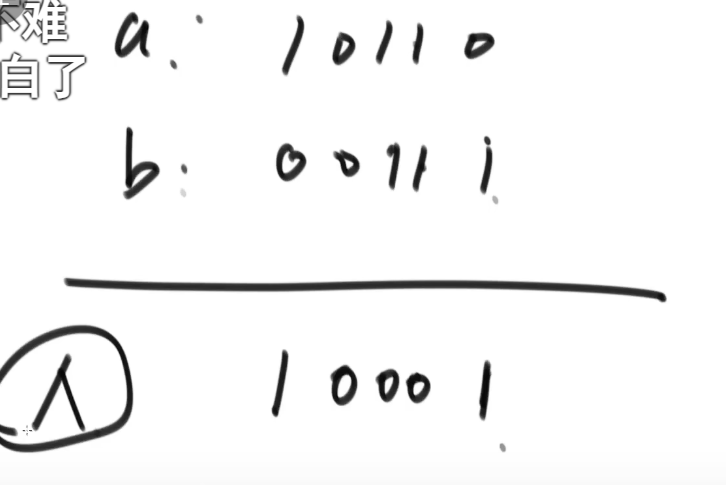 难
白了
a: 10110
b: 00111
∧ 10001